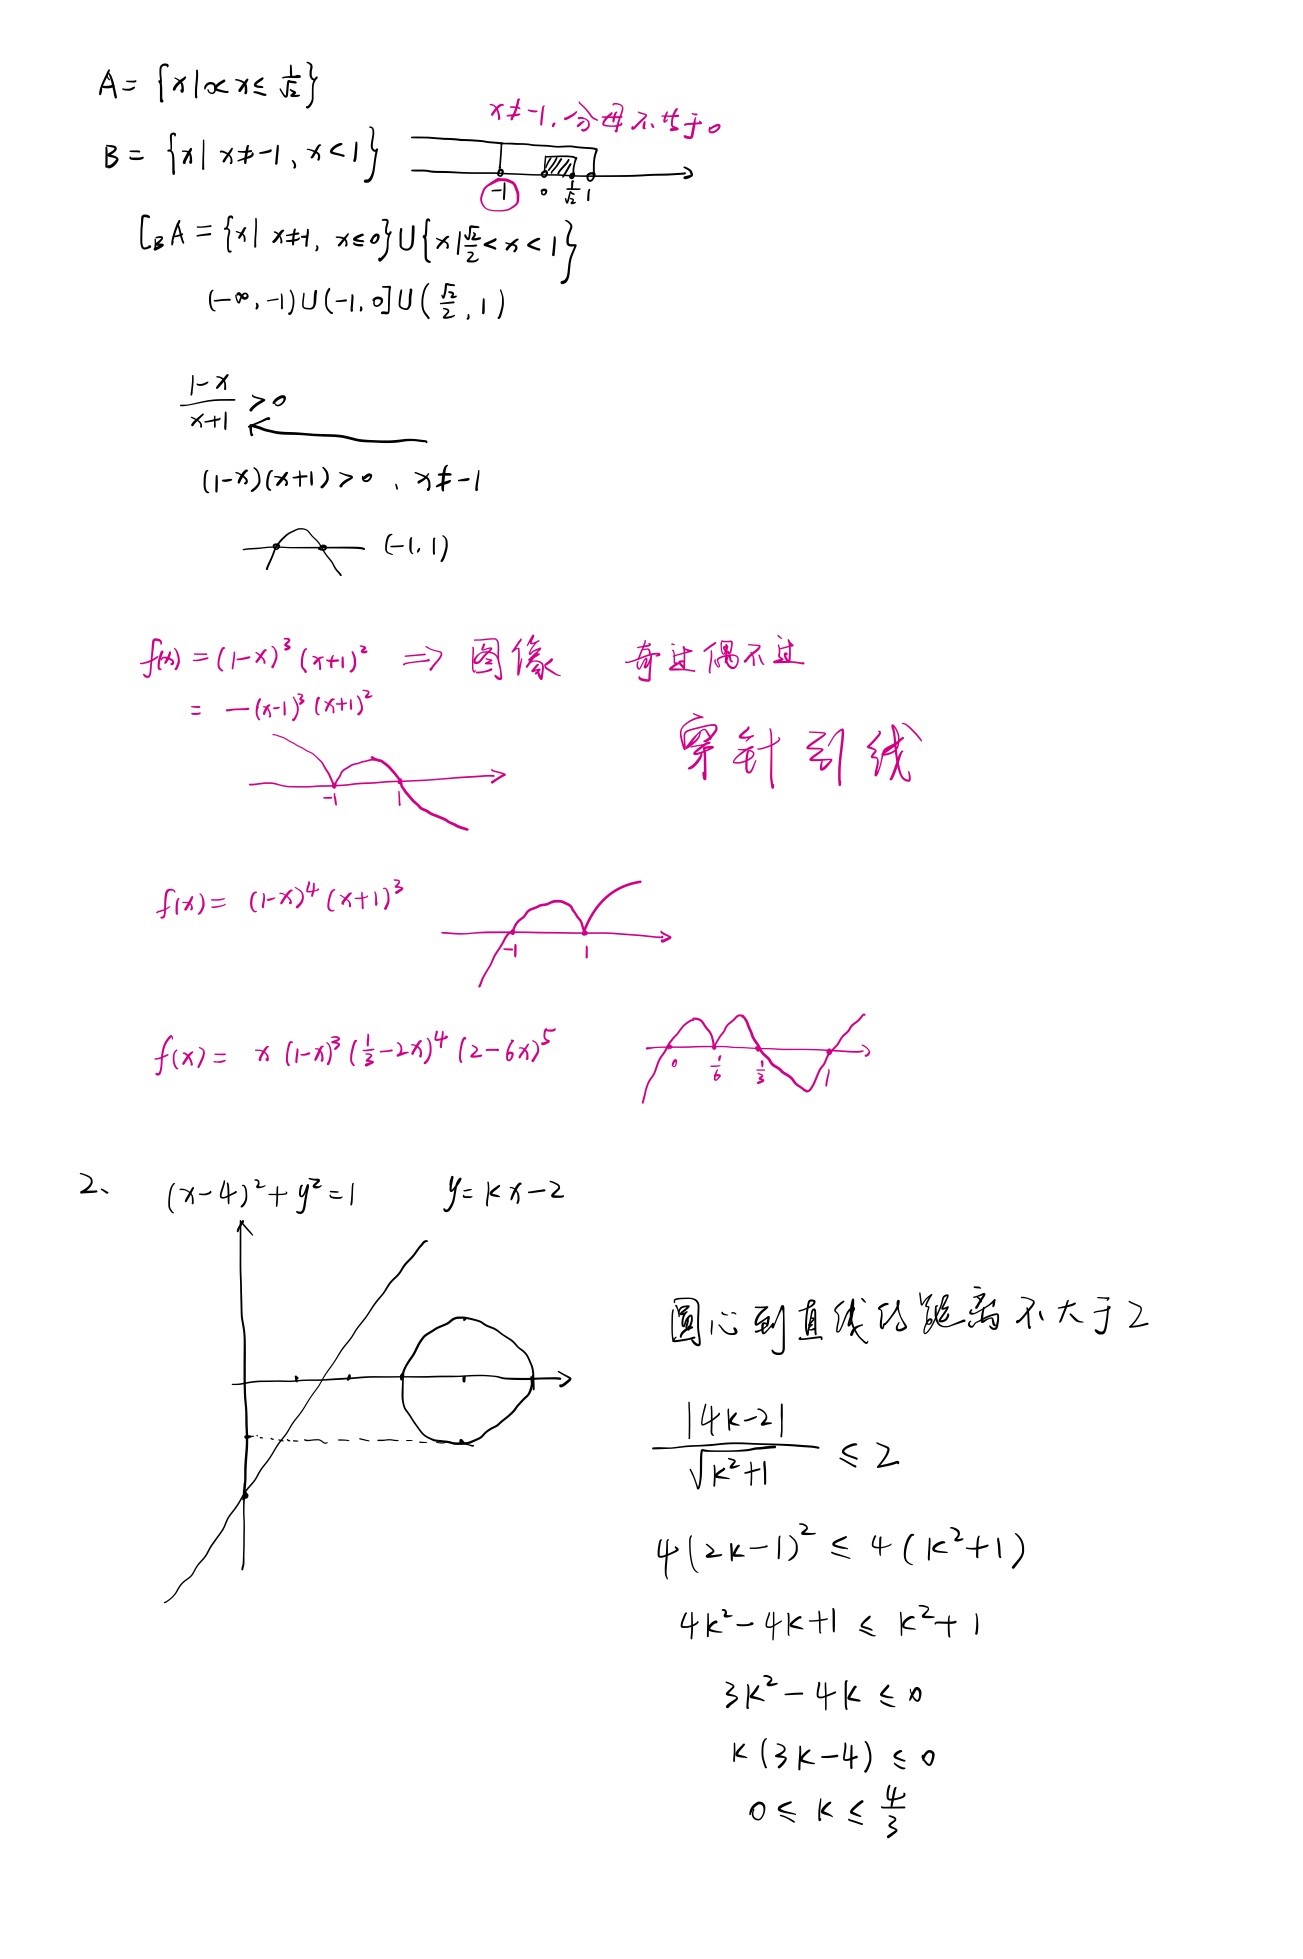 A = {x | 0<x ≤ 1/√2}
x ≠ -1, 分母不等于0
B = {x | x ≠ -1, x < 1}
-1 0 1/√2 1
∁_B A = {x | x ≠ -1, x ≤ 0} ∪ {x | √2/2 < x < 1}
(-∞, -1) ∪ (-1, 0] ∪ (√2/2, 1)
(1-x)/(x+1) > 0
(1-x)(x+1) > 0 , x ≠ -1
(-1, 1)
f(x) = (1-x)³ (x+1)² ⇒ 图像 奇过偶不过
= -(x-1)³ (x+1)²
穿针引线
-1 1
f(x) = (1-x)⁴ (x+1)³
-1 1
f(x) = x (1-x)³ (1/3 - 2x)⁴ (2-6x)⁵
0 1/6 1/3 1
2、 (x-4)² + y² = 1 y = kx - 2
圆心到直线的距离不大于2
|4k-2| / √(k²+1) ≤ 2
4(2k-1)² ≤ 4(k²+1)
4k² - 4k + 1 ≤ k² + 1
3k² - 4k ≤ 0
k(3k-4) ≤ 0
0 ≤ k ≤ 4/3